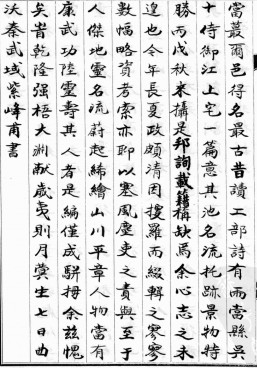 當蕞爾邑得名最古昔讀工部詩有兩當縣吳
十侍御江上宅一篇意其池名流托跡景物特
勝丙戌秋來攝是邦詢載籍稱缺焉余心志之未
遑也今年長夏政頗清因搜羅而綴輯之寥寥
數幅略資考索亦聊以塞風塵吏之責與至于
人傑地靈名流蔚起絺繪山川平章人物當有
康武功陸靈壽其人者是編僅成駢拇余茲愧
矣旹乾隆强梧大淵献歲夷則月蓂生七日曲
沃秦武域紫峰甫書